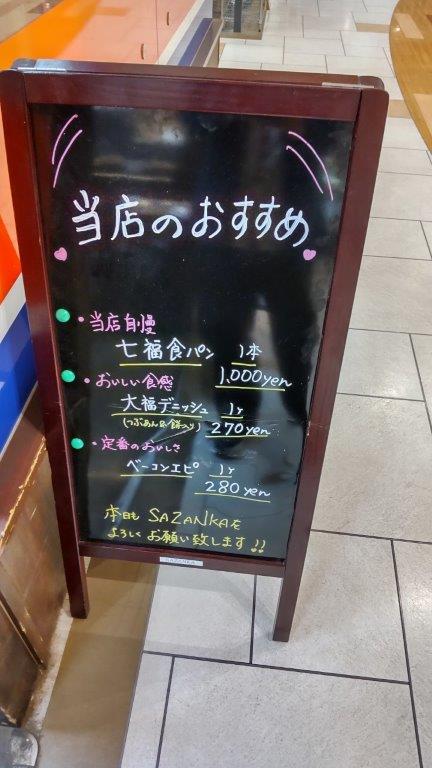 当店のおすすめ
・当店自慢
七福食パン 1本
1,000yen
・おいしい食感
大福デニッシュ 1ヶ
(つぶあん&餅入り) 270yen
・定番のおいしさ
ベーコンエピ 1ヶ
280yen
本日も SAZANKAを
よろしくお願い致します!!
SAZANKA